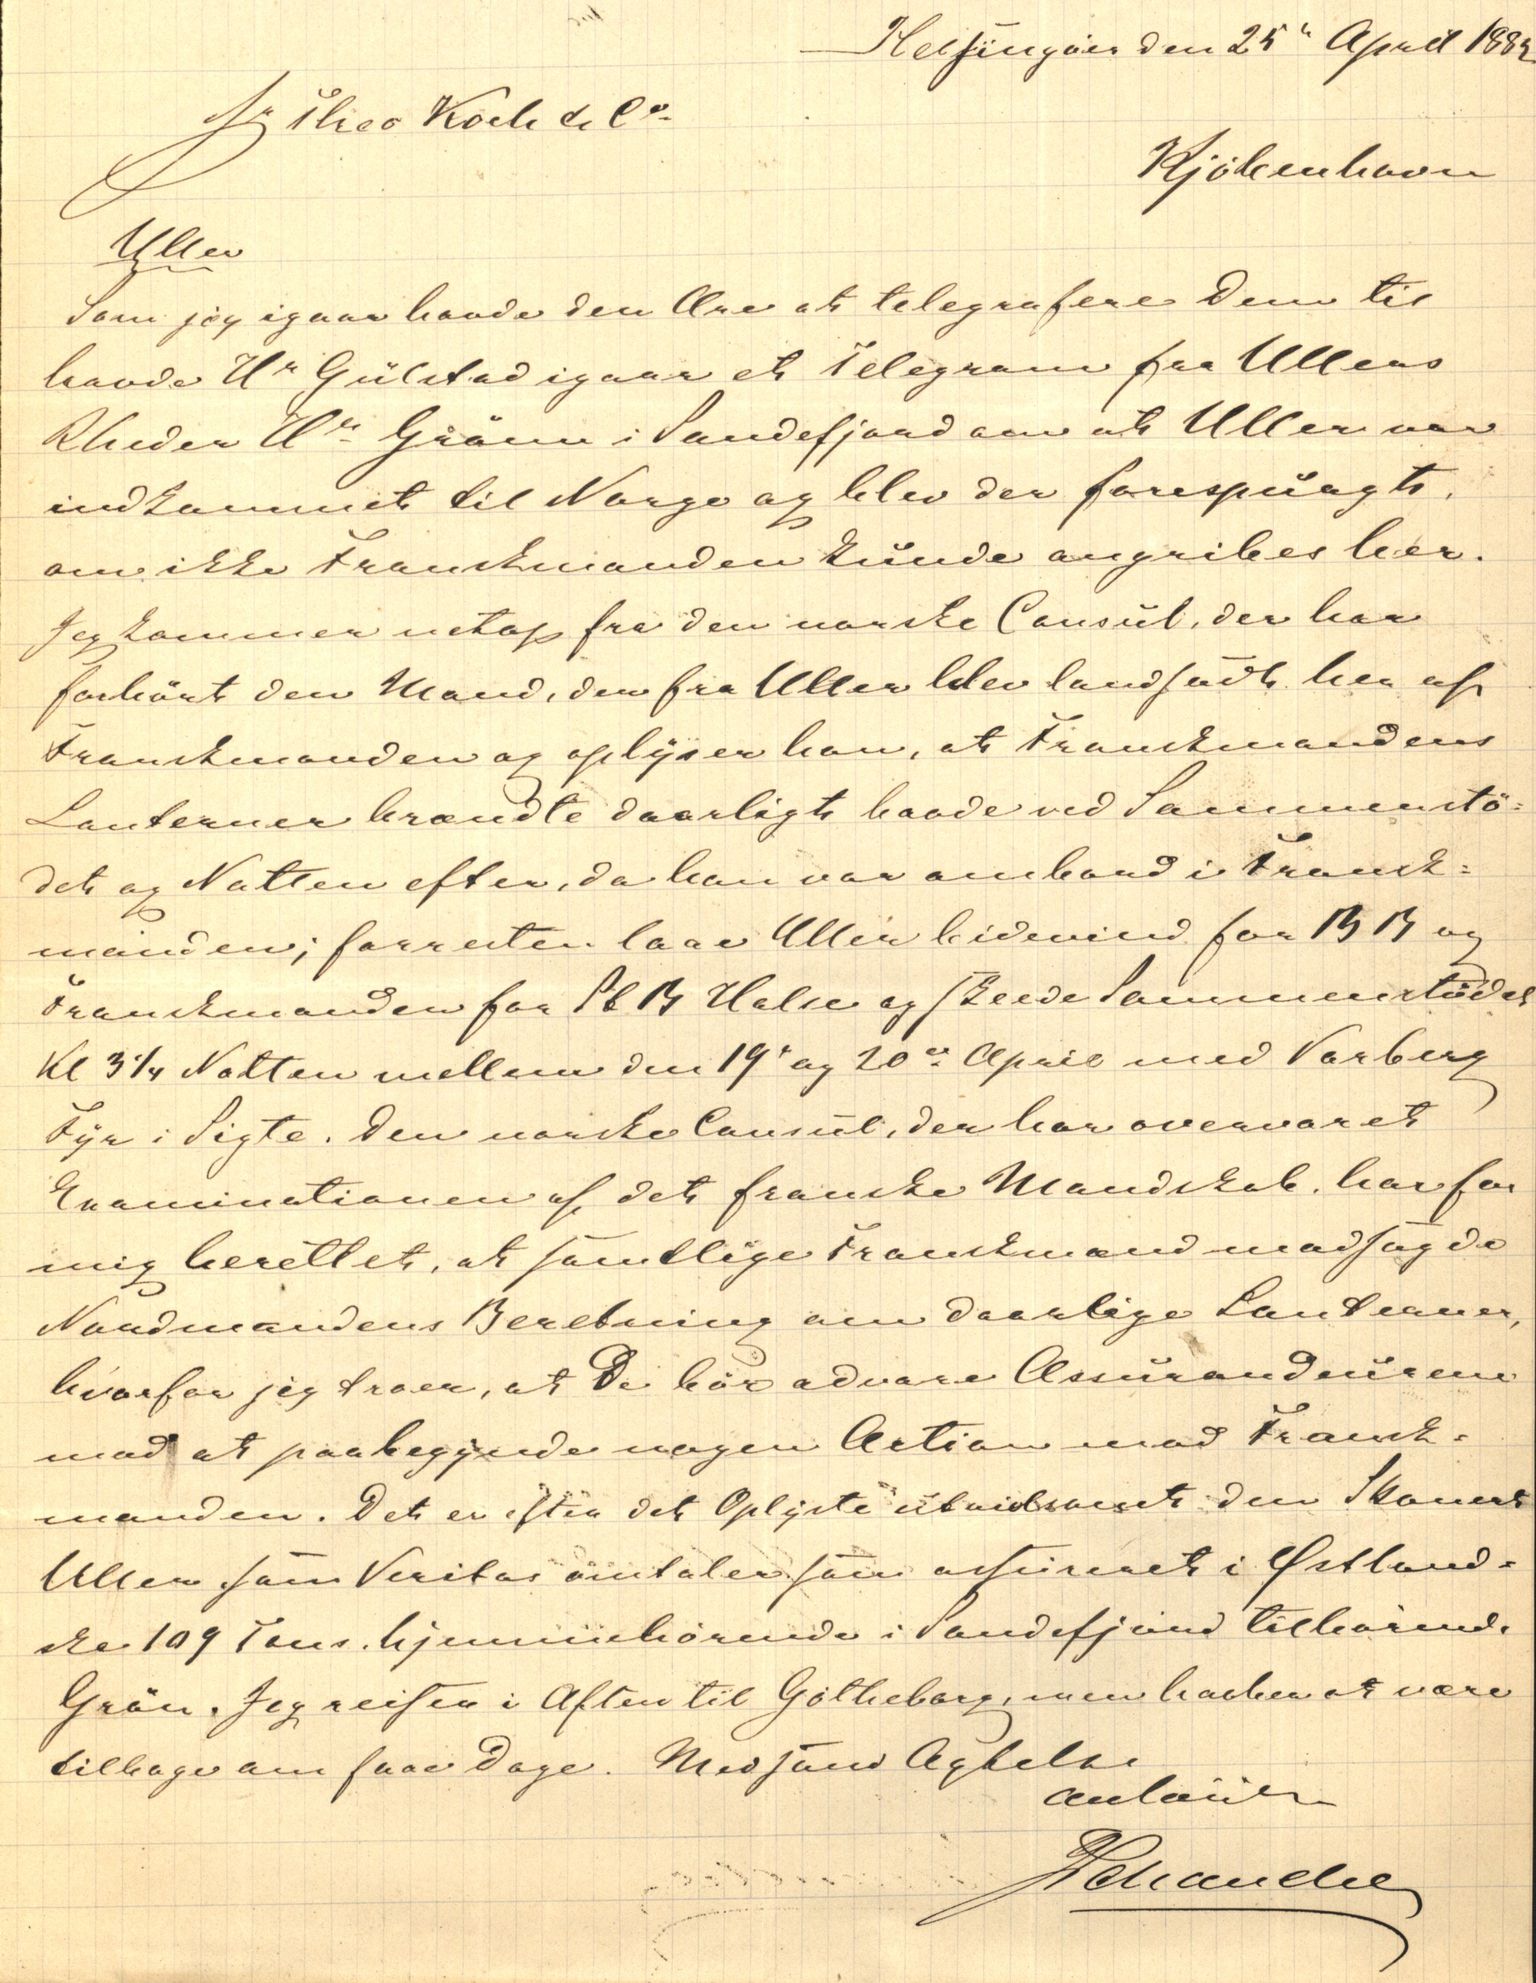 Helsingöer den 25 April 188
Hr Theo Koch & Co
Kjöbenhavn
Uller
Som jeg igaar havde den Ære at telegrafere Dem til
havde Hr Gülstad igaar et Telegram fra Ullers
Rheder Hr Grönn i Sandefjord om at Uller var
indkommet til Norge og blev der forespürgt,
om ikke Franskmanden künde angribes her.
Jeg kommer netop fra den norske Consül, der har
forhört den Mand, der fra Uller blev landsadt her af
Franskmanden og oplÿser han, at Franskmandens
Lanterner brændte daarligt baade ved Sammenstö-
det og Natten efter, da han var ombord i Fransk-
manden; forresten laae Uller bidevind for B B og
Franskmanden for Stb B Halse og skede Sammenstödet
Kl 3 1/4 Natten mellem den 19 og 20 April med Varberg
Fÿr i Sigte. Den norske Consül, der har overværet
Examinationen af det franske Mandskab, har for
mig berettet, at samtlige Franskmænd modsagde
Nordmandens Beretning om daarlige Lanterner,
hvorfor jeg troer, at De bör advare Assürandeürene
mod at paabegÿnde nogen Action mod Fransk-
manden. Det er efter det Oplÿste den Skonert
Uller som Veritas omtaler som assüreret i Østland-
ske 109 Tons. hjemmehörende i Sandefjord tilhörende
Grön. Jeg reiser i Aften til Gøtheborg, men haaber at være
tilbage om faae Dage. Med sand Agtelse